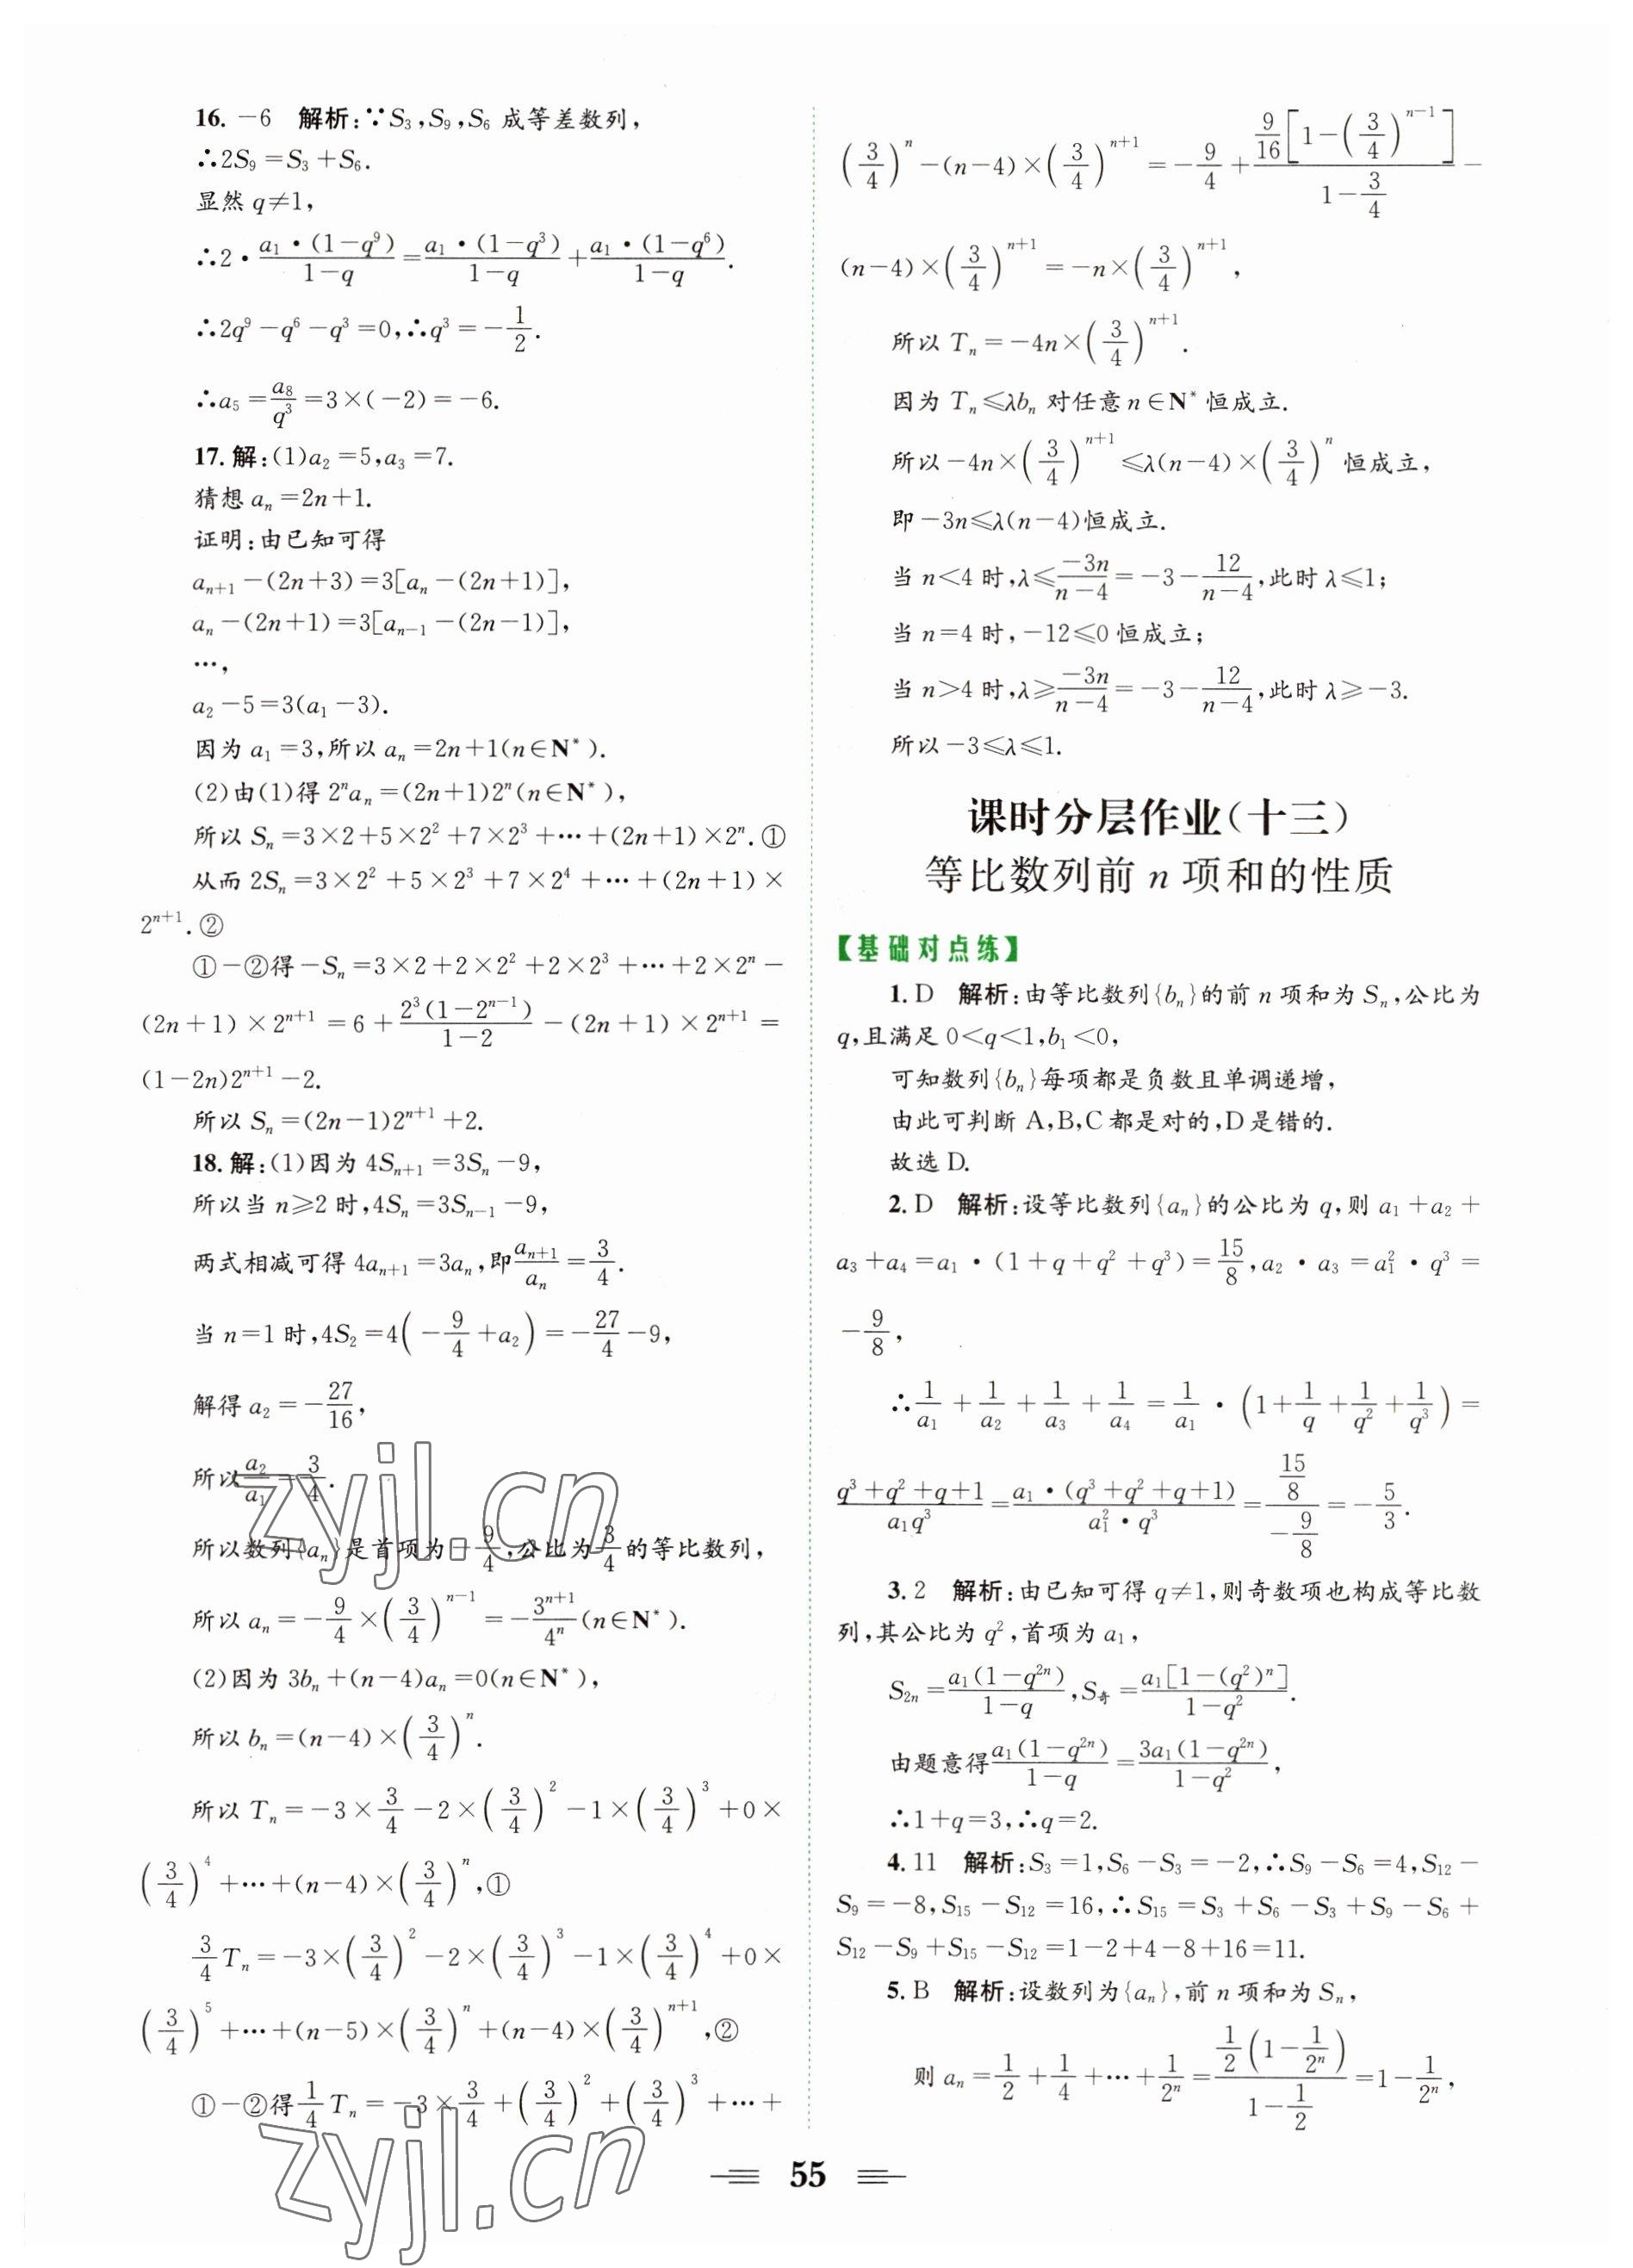 16. －6　解析:∵S₃,S₉,S₆ 成等差数列,
∴2S₉=S₃+S₆.
显然 q≠1,
∴2·\frac{a₁·(1-q⁹)}{1-q}=\frac{a₁·(1-q³)}{1-q}+\frac{a₁·(1-q⁶)}{1-q}.
∴2q⁹-q⁶-q³=0,∴q³=-\frac{1}{2}.
∴a₅=\frac{a₈}{q³}=3×(-2)=-6.
17. 解:(1)a₂=5,a₃=7.
猜想 aₙ=2n+1.
证明:由已知可得
aₙ₊₁-(2n+3)=3[aₙ-(2n+1)],
aₙ-(2n+1)=3[aₙ₋₁-(2n-1)],
…,
a₂-5=3(a₁-3).
因为 a₁=3,所以 aₙ=2n+1(n∈N*).
(2)由(1)得 2ⁿaₙ=(2n+1)2ⁿ(n∈N*),
所以 Sₙ=3×2+5×2²+7×2³+…+(2n+1)×2ⁿ.①
从而 2Sₙ=3×2²+5×2³+7×2⁴+…+(2n+1)×
2ⁿ⁺¹.②
①-②得-Sₙ=3×2+2×2²+2×2³+…+2×2ⁿ-
(2n+1)×2ⁿ⁺¹=6+\frac{2³(1-2ⁿ⁻¹)}{1-2}-(2n+1)×2ⁿ⁺¹=
(1-2n)2ⁿ⁺¹-2.
所以 Sₙ=(2n-1)2ⁿ⁺¹+2.
18. 解:(1)因为 4Sₙ₊₁=3Sₙ-9,
所以当 n≥2 时,4Sₙ=3Sₙ₋₁-9,
两式相减可得 4aₙ₊₁=3aₙ,即\frac{aₙ₊₁}{aₙ}=\frac{3}{4}.
当 n=1 时,4S₂=4(-\frac{9}{4}+a₂)=-\frac{27}{4}-9,
解得 a₂=-\frac{27}{16},
所以\frac{a₂}{a₁}=\frac{3}{4}.
所以数列{aₙ}是首项为-\frac{9}{4},公比为\frac{3}{4}的等比数列,
所以 aₙ=-\frac{9}{4}×(\frac{3}{4})ⁿ⁻¹=-\frac{3ⁿ⁺¹}{4ⁿ}(n∈N*).
(2)因为 3bₙ+(n-4)aₙ=0(n∈N*),
所以 bₙ=(n-4)×(\frac{3}{4})ⁿ.
所以 Tₙ=-3×\frac{3}{4}-2×(\frac{3}{4})²-1×(\frac{3}{4})³+0×
(\frac{3}{4})⁴+…+(n-4)×(\frac{3}{4})ⁿ,①
\frac{3}{4}Tₙ=-3×(\frac{3}{4})²-2×(\frac{3}{4})³-1×(\frac{3}{4})⁴+0×
(\frac{3}{4})⁵+…+(n-5)×(\frac{3}{4})ⁿ+(n-4)×(\frac{3}{4})ⁿ⁺¹,②
①-②得\frac{1}{4}Tₙ=-3×\frac{3}{4}+(\frac{3}{4})²+(\frac{3}{4})³+…+
(\frac{3}{4})ⁿ-(n-4)×(\frac{3}{4})ⁿ⁺¹=-\frac{9}{4}+\frac{\frac{9}{16}[1-(\frac{3}{4})ⁿ⁻¹]}{1-\frac{3}{4}}-
(n-4)×(\frac{3}{4})ⁿ⁺¹=-n×(\frac{3}{4})ⁿ⁺¹,
所以 Tₙ=-4n×(\frac{3}{4})ⁿ⁺¹.
因为 Tₙ≤λbₙ 对任意 n∈N* 恒成立.
所以-4n×(\frac{3}{4})ⁿ⁺¹≤λ(n-4)×(\frac{3}{4})ⁿ 恒成立,
即-3n≤λ(n-4)恒成立.
当 n<4 时,λ≤\frac{-3n}{n-4}=-3-\frac{12}{n-4},此时 λ≤1;
当 n=4 时,-12≤0 恒成立;
当 n>4 时,λ≥\frac{-3n}{n-4}=-3-\frac{12}{n-4},此时 λ≥-3.
所以-3≤λ≤1.
课时分层作业(十三)
等比数列前 n 项和的性质
【基础对点练】
1. D　解析:由等比数列{bₙ}的前 n 项和为 Sₙ,公比为
q,且满足 0<q<1,b₁<0,
可知数列{bₙ}每项都是负数且单调递增,
由此可判断 A,B,C 都是对的,D 是错的.
故选 D.
2. D　解析:设等比数列{aₙ}的公比为 q,则 a₁+a₂+
a₃+a₄=a₁·(1+q+q²+q³)=\frac{15}{8},a₂·a₃=a₁²·q³=
-\frac{9}{8},
∴\frac{1}{a₁}+\frac{1}{a₂}+\frac{1}{a₃}+\frac{1}{a₄}=\frac{1}{a₁}·(1+\frac{1}{q}+\frac{1}{q²}+\frac{1}{q³})=
\frac{q³+q²+q+1}{a₁q³}=\frac{a₁·(q³+q²+q+1)}{a₁²·q³}=\frac{\frac{15}{8}}{-\frac{9}{8}}=-\frac{5}{3}.
3. 2　解析:由已知可得 q≠1,则奇数项也构成等比数
列,其公比为 q²,首项为 a₁,
S₂ₙ=\frac{a₁(1-q²ⁿ)}{1-q},S奇=\frac{a₁[1-(q²)ⁿ]}{1-q²}.
由题意得\frac{a₁(1-q²ⁿ)}{1-q}=\frac{3a₁(1-q²ⁿ)}{1-q²},
∴1+q=3,∴q=2.
4. 11　解析:S₃=1,S₆-S₃=-2,∴S₉-S₆=4,S₁₂-
S₉=-8,S₁₅-S₁₂=16,∴S₁₅=S₃+S₆-S₃+S₉-S₆+
S₁₂-S₉+S₁₅-S₁₂=1-2+4-8+16=11.
5. B　解析:设数列为{aₙ},前 n 项和为 Sₙ,
则 aₙ=\frac{1}{2}+\frac{1}{4}+…+\frac{1}{2ⁿ}=\frac{\frac{1}{2}(1-\frac{1}{2ⁿ})}{1-\frac{1}{2}}=1-\frac{1}{2ⁿ},
55
zyjl.cn
zyjl.cn